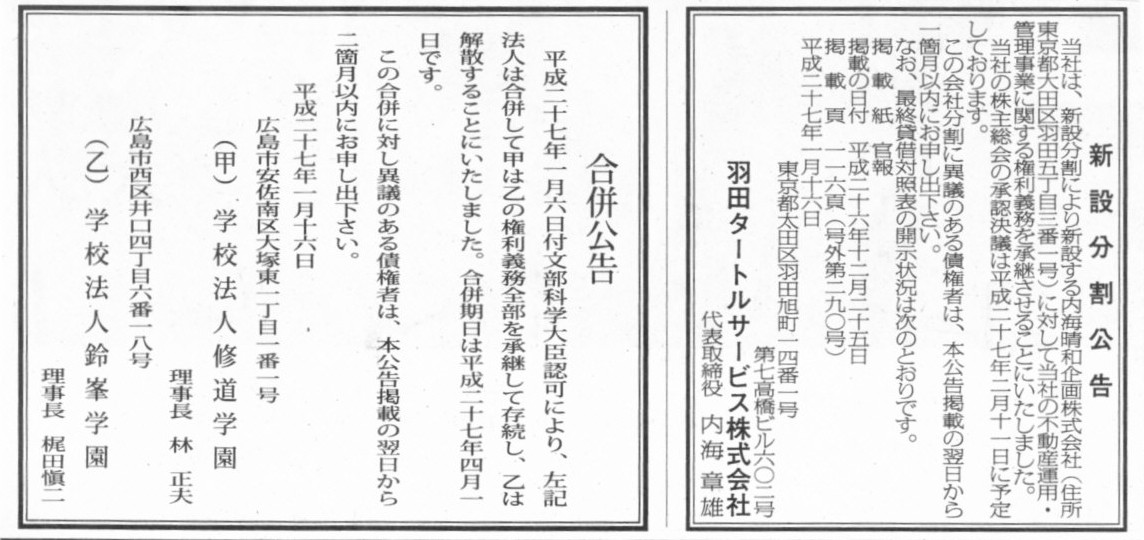 新設分割公告
当社は、新設分割により新設する内海晴和企画株式会社（住所
東京都大田区羽田五丁目三番一号）に対して当社の不動産運用・
管理事業に関する権利義務を承継させることにいたしました。
当社の株主総会の承認決議は平成二十七年二月十一日に予定
しております。
この会社分割に異議のある債権者は、本公告掲載の翌日から
一箇月以内にお申し出下さい。
なお、最終貸借対照表の開示状況は次のとおりです。
掲載紙　官報
掲載の日付　平成二十六年十二月二十五日
掲載頁　一一六頁（号外第二九〇号）
平成二十七年一月十六日
東京都大田区羽田旭町一四番一号
第七高橋ビル六〇二号
羽田タートルサービス株式会社
代表取締役　内海章雄
合併公告
平成二十七年一月六日付文部科学大臣認可により、左記
法人は合併して甲は乙の権利義務全部を承継して存続し、乙は
解散することにいたしました。合併期日は平成二十七年四月一
日です。
この合併に対し異議のある債権者は、本公告掲載の翌日から
二箇月以内にお申し出下さい。
平成二十七年一月十六日
広島市安佐南区大塚東一丁目一番一号
（甲）　学校法人修道学園
理事長　林　正夫
広島市西区井口四丁目六番一八号
（乙）　学校法人鈴峯学園
理事長　梶田愼二